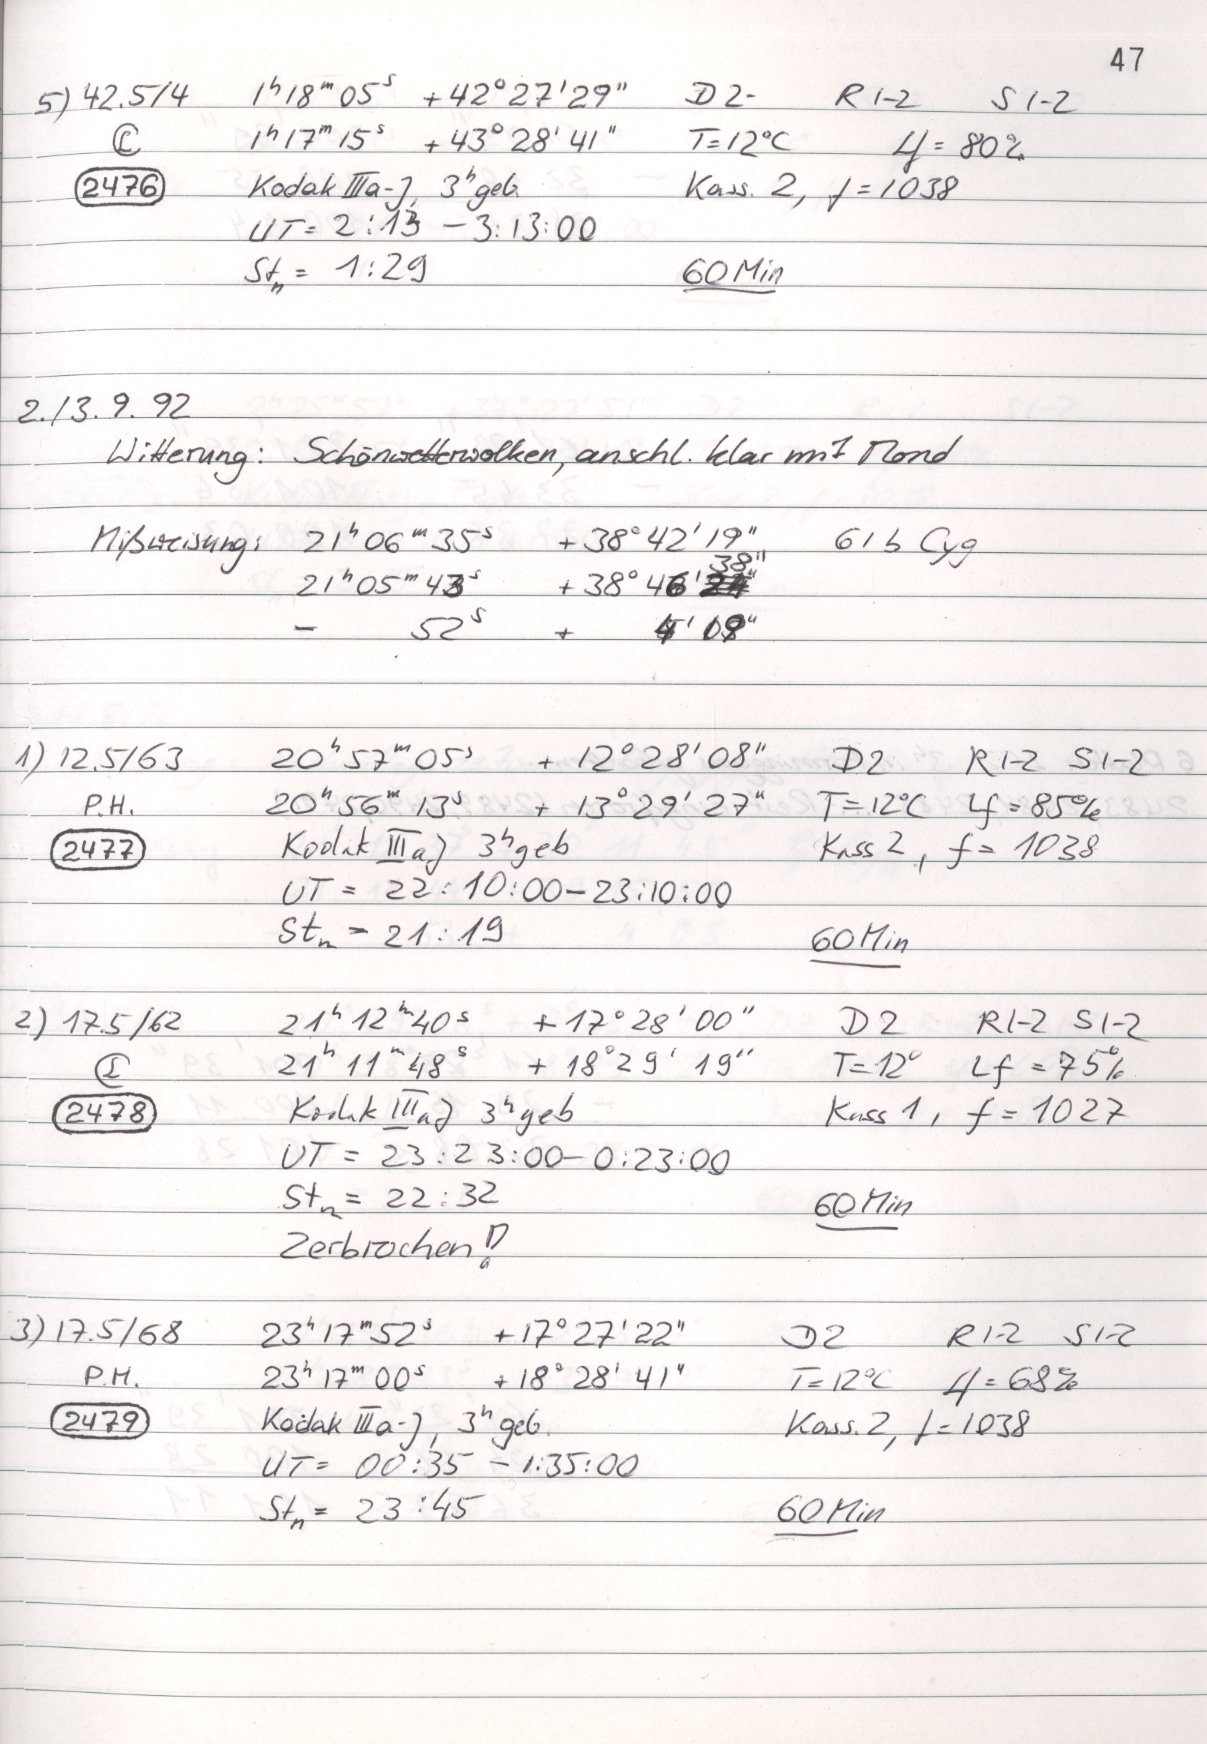 47
5) 42.5/4 1ʰ18ᵐ05ˢ +42°27'29" D2- R1-2 S1-2
1ʰ17ᵐ15ˢ +43°28'41" T=12°C Lf=80%
2476 Kodak IIIa-J, 3ʰ geb. Kass. 2, f=1038
UT= 2:13 – 3:13:00
Stₙ= 1:29 60 Min
2./3. 9. 92
Witterung: Schönwetterwolken, anschl. klar mit Mond
Mißweisung: 21ʰ06ᵐ35ˢ +38°42'19" 61 b Cyg
38"
21ʰ05ᵐ43ˢ +38°46'
– 52ˢ + 4'19"
1) 12.5/63 20ʰ57ᵐ05ˢ +12°28'08" D2 R1-2 S1-2
P.H. 20ʰ56ᵐ13ˢ +13°29'27" T=12°C Lf=85%
2477 Kodak IIIaJ 3ʰgeb Kass 2, f= 1038
UT = 22:10:00–23:10:00
Stₙ = 21:19 60 Min
2) 17.5/62 21ʰ12ᵐ40ˢ +17°28'00" D2 R1-2 S1-2
21ʰ11ᵐ48ˢ +18°29'19" T=12° Lf=75%
2478 Kodak IIIaJ 3ʰgeb Kass 1, f=1027
UT = 23:23:00–0:23:00
Stₙ= 22:32 60 Min
Zerbrochen!
3) 17.5/68 23ʰ17ᵐ52ˢ +17°27'22" D2 R1-2 S1-2
P.H. 23ʰ17ᵐ00ˢ +18°28'41" T=12°C Lf=68%
2479 Kodak IIIa-J, 3ʰ geb. Kass. 2, f=1038
UT= 00:35 – 1:35:00
Stₙ= 23:45 60 Min